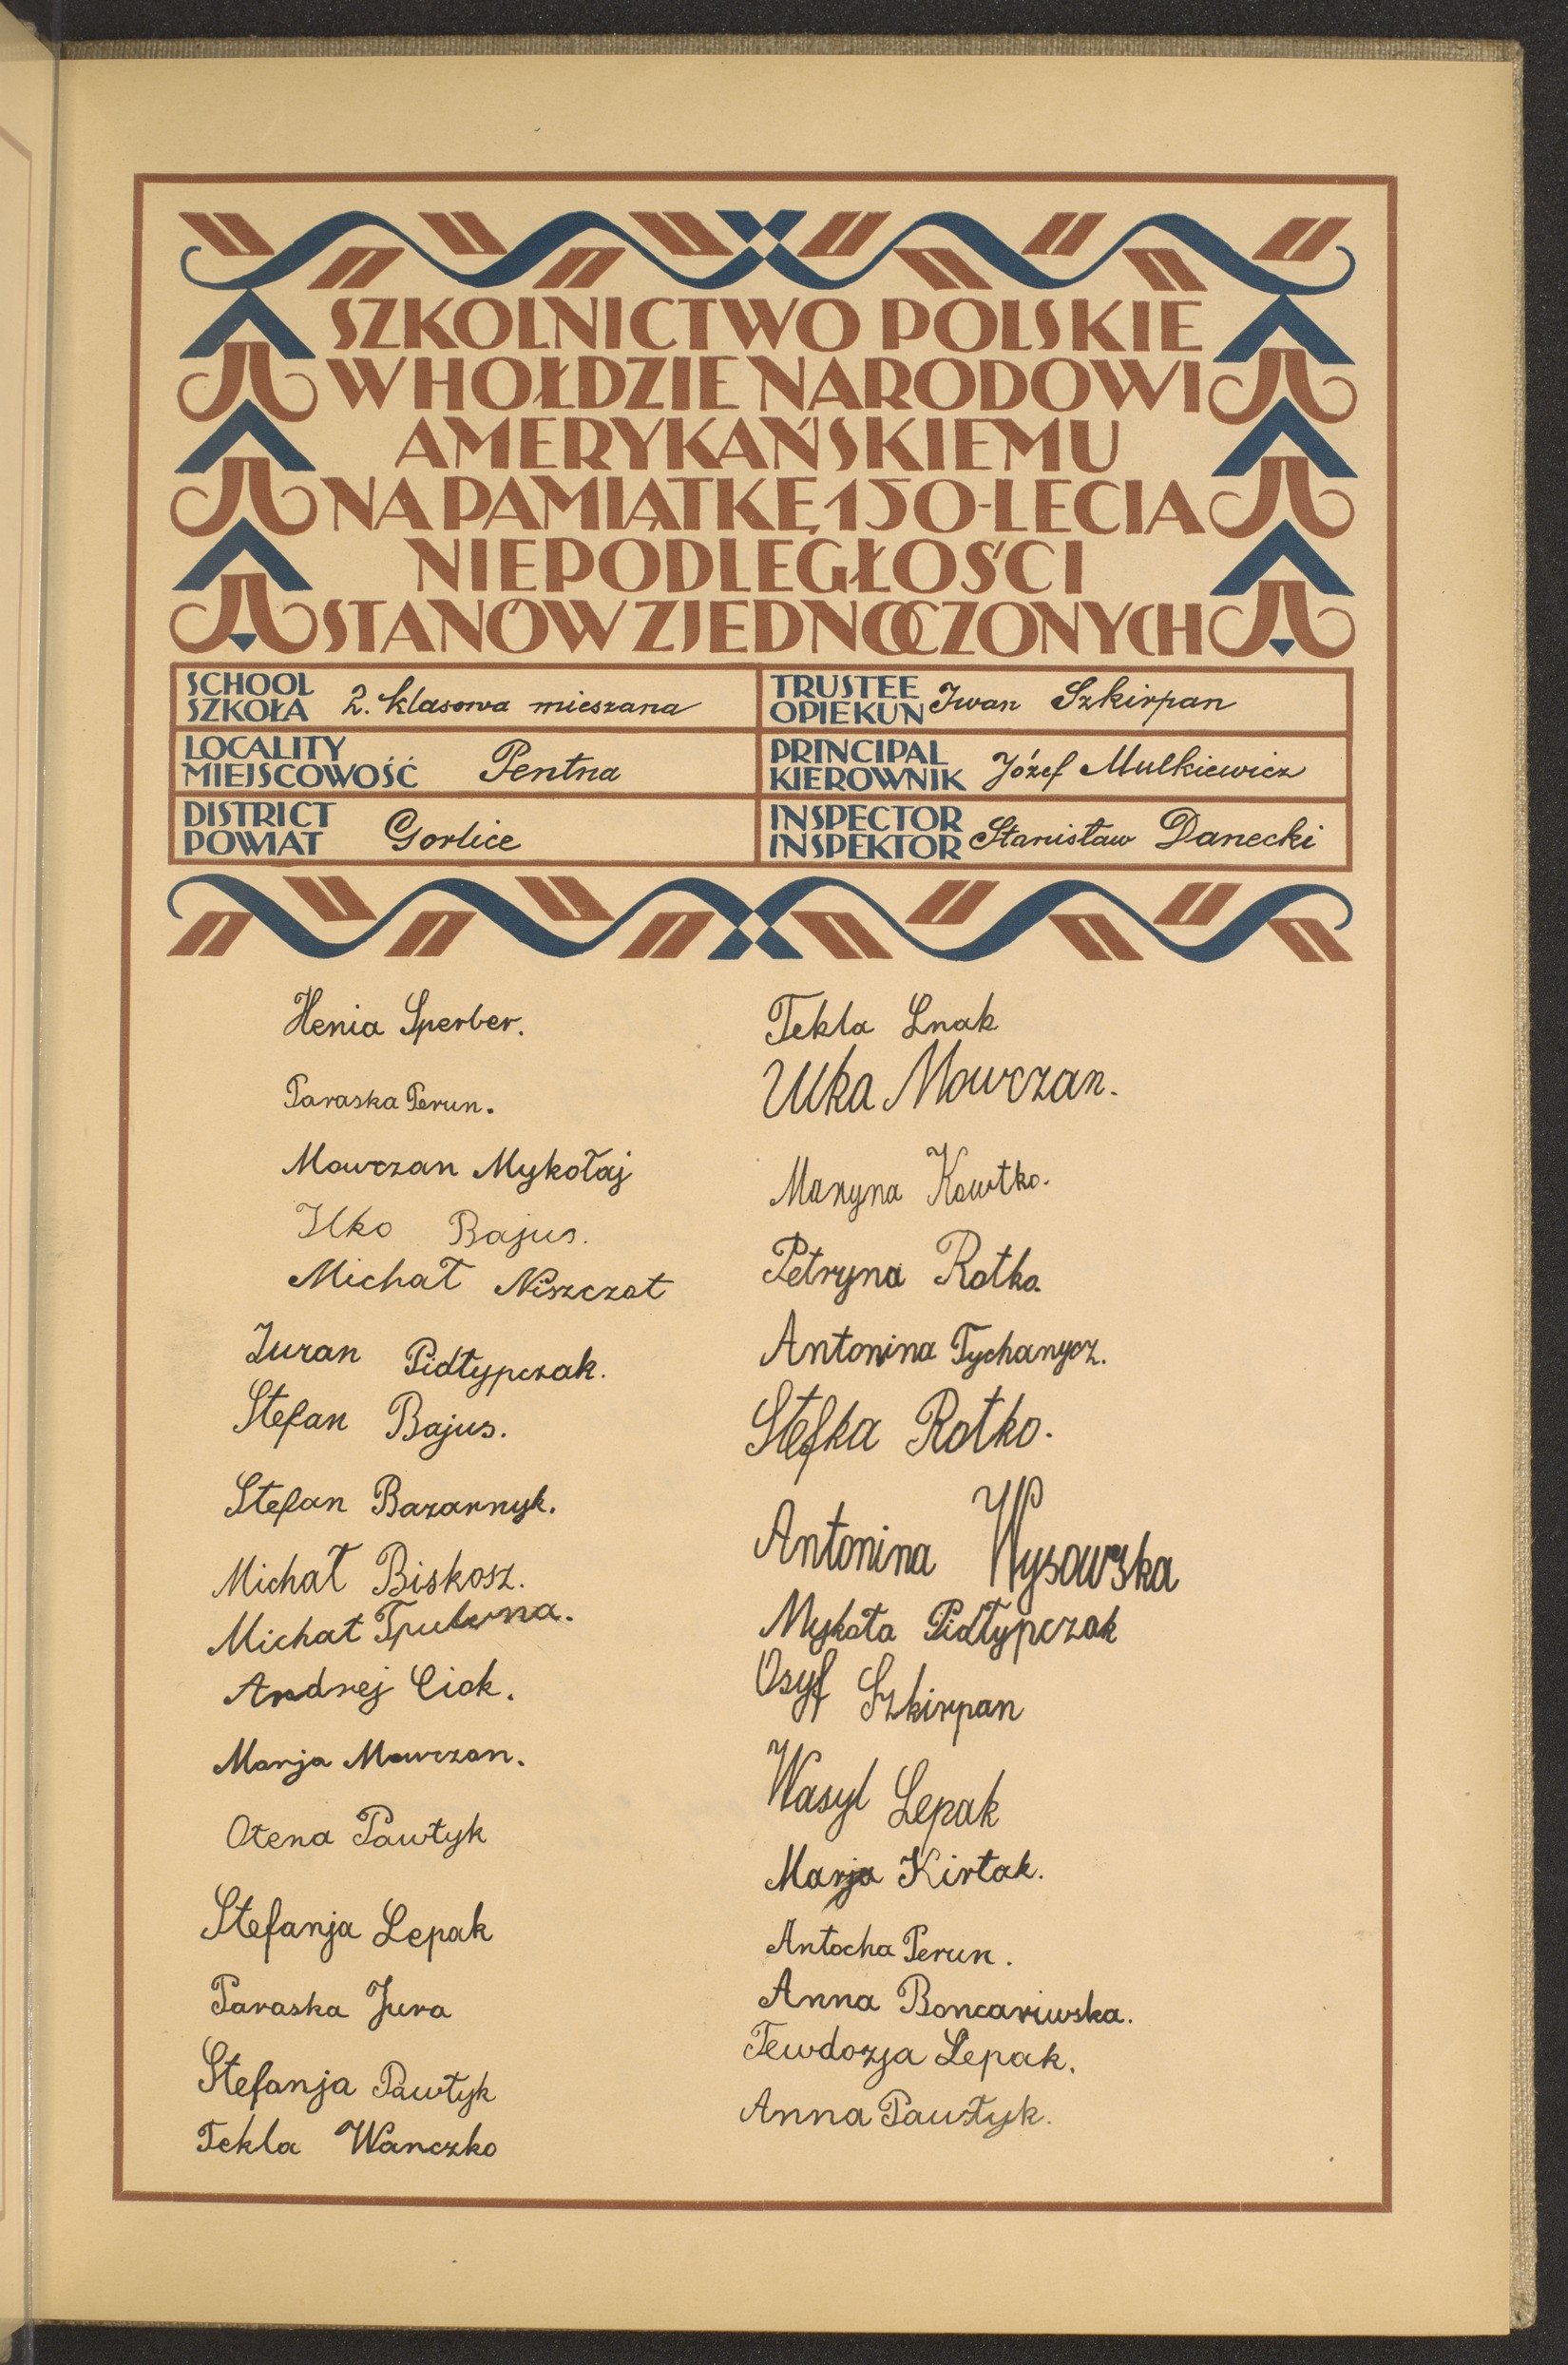 SZKOLNICTWO POLSKIE
W HOŁDZIE NARODOWI
AMERYKAŃSKIEMU
NA PAMIĄTKĘ 150-LECIA
NIEPODLEGŁOŚCI
STANÓW ZJEDNOCZONYCH
SCHOOL
SZKOŁA 2. klasowa mieszana
TRUSTEE
OPIEKUN Iwan Szkirpan
LOCALITY
MIEJSCOWOŚĆ Pentna
PRINCIPAL
KIEROWNIK Józef Mulkiewicz
DISTRICT
POWIAT Gorlice
INSPECTOR
INSPEKTOR Stanisław Danecki
Henia Sperber.
Paraska Perun.
Mowczan Mykołaj
Ilko Bajus.
Michał Niszczot
Juran Pidłypczak.
Stefan Bajus.
Stefan Bazarnyk.
Michał Biskosz.
Michał
Andrej Ciok.
Marja Mowczan.
Ołena Pawłyk
Stefanja Lepak
Paraska Jura
Stefanja Pawłyk
Tekla Wanczko
Tekla Lnak
Ulka Mowczan.
Maryna Kowtko.
Petryna Rotko.
Antonina Tychanycz.
Stefka Rotko.
Antonina Wysowska
Mykoła Pidłypczak
Osyf Szkirpan
Wasyl Lepak
Marja Kirtak.
Antocha Perun.
Anna Boncariwska.
Tewdozja Lepak.
Anna Pawłyk.